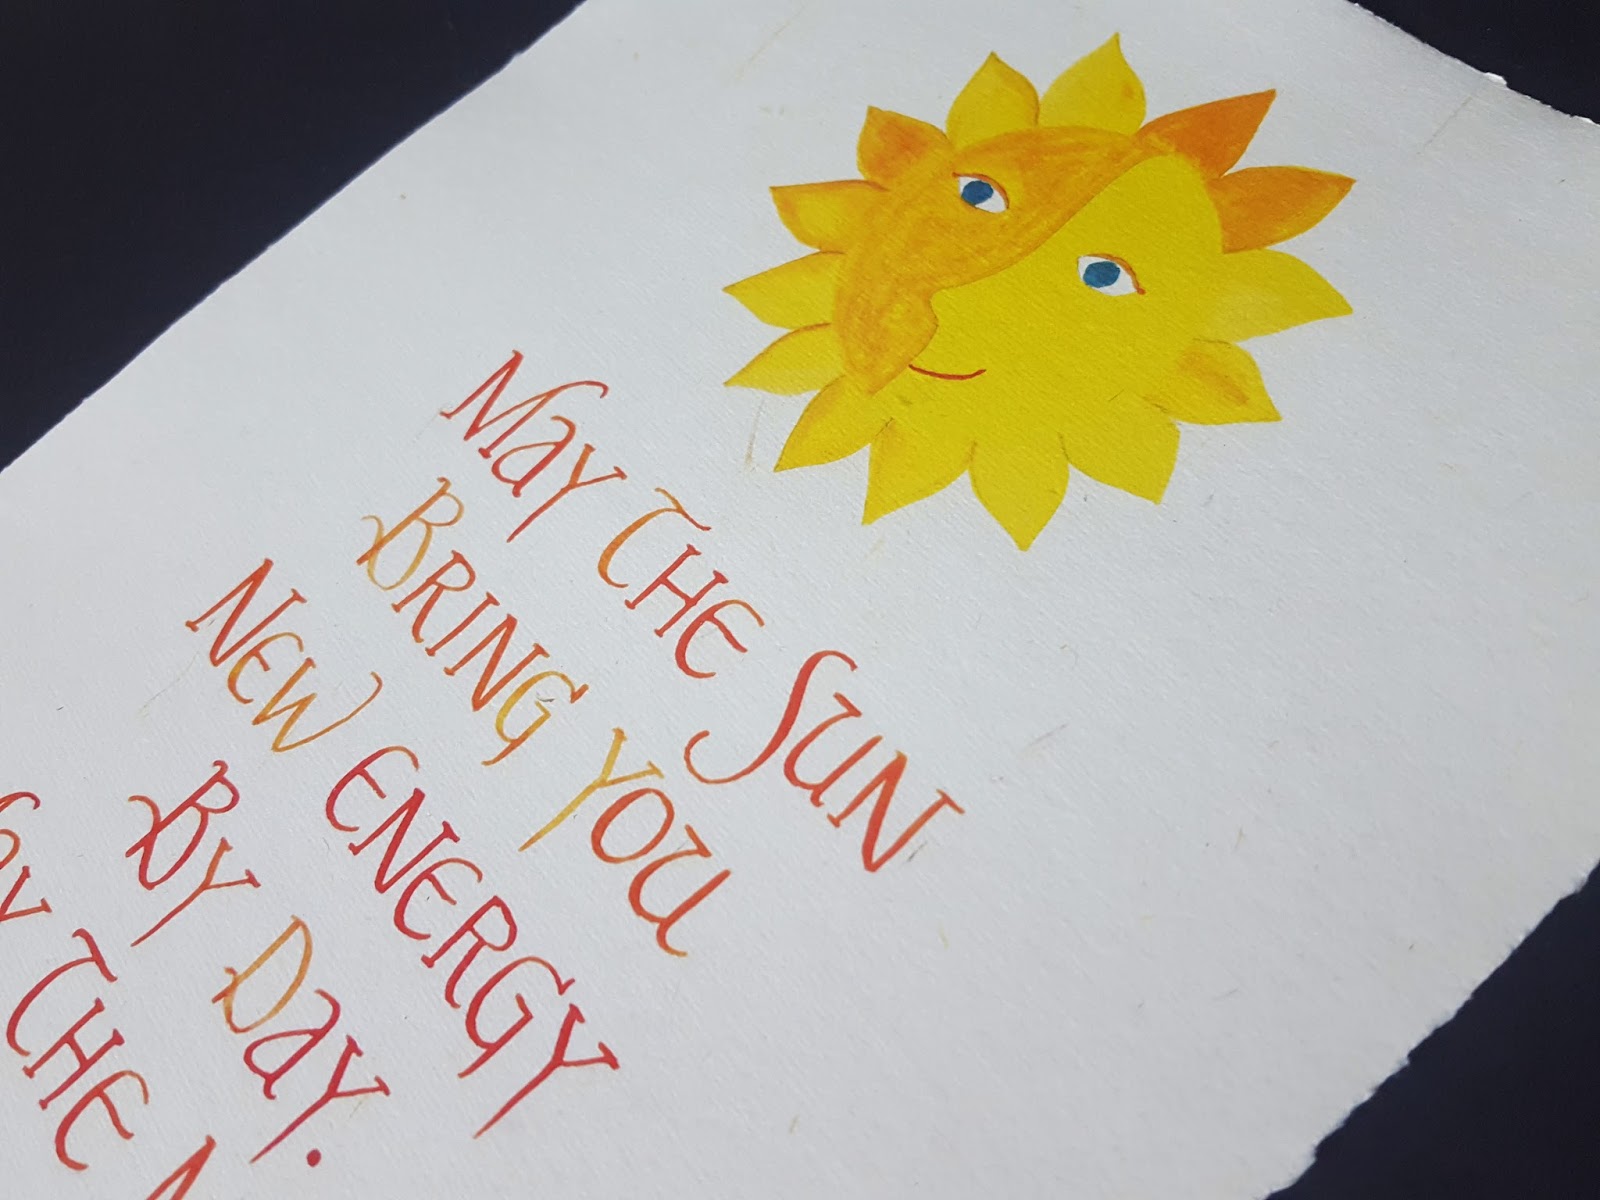 May The Sun
Bring You
New Energy
By Day.
The